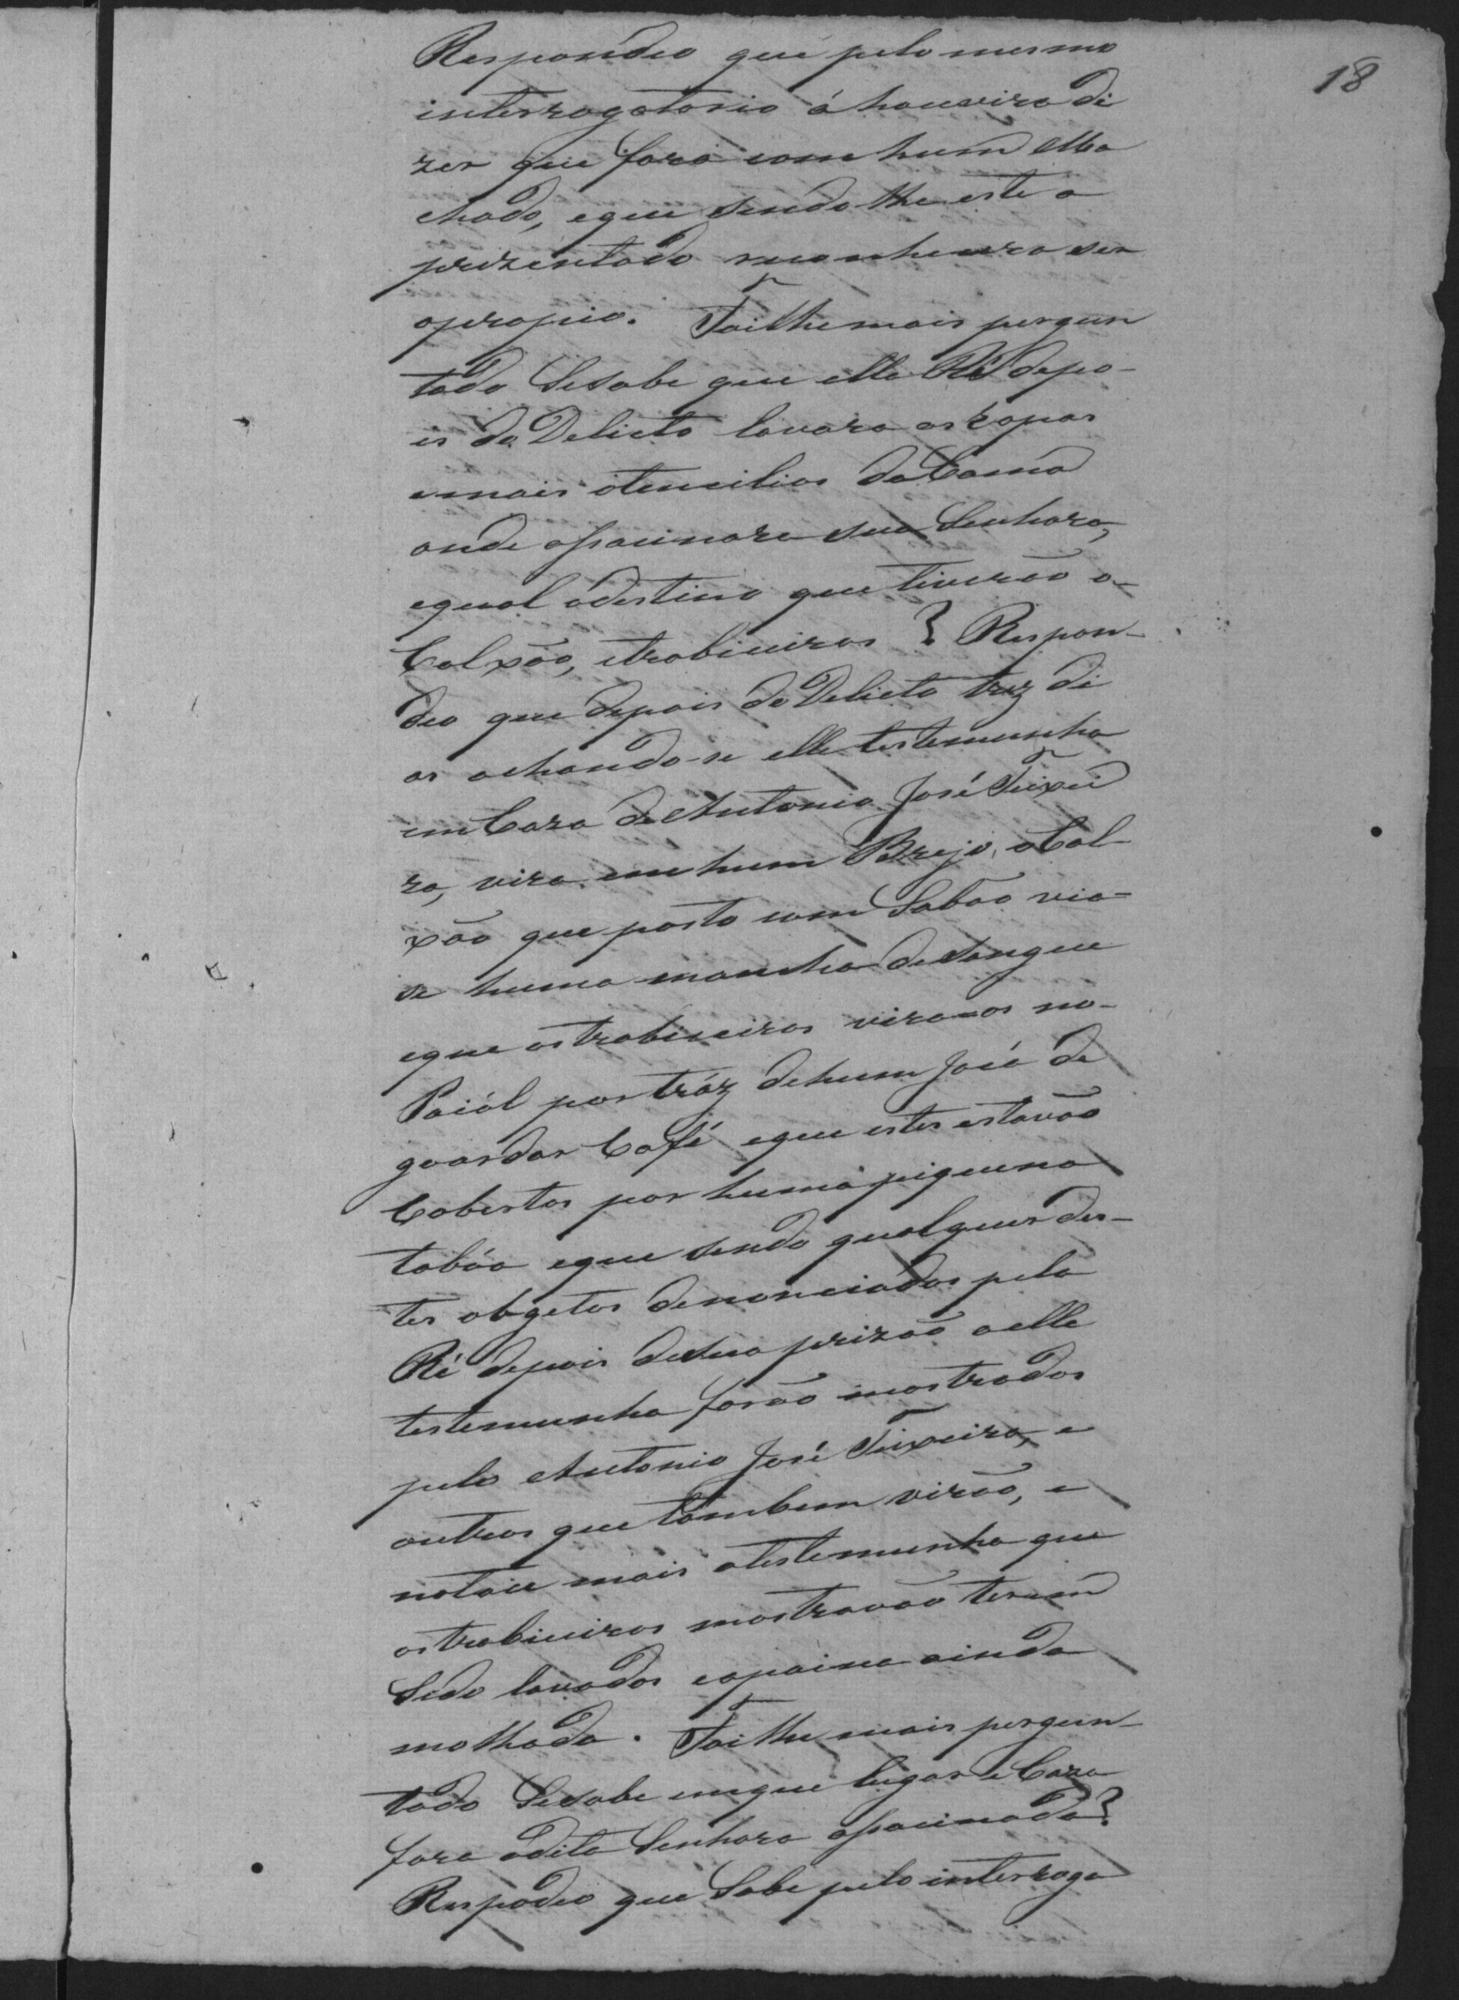 18
Respondeo que pelo mesmo
interrogatorio á houvira di
zer que fora com hum Ma
chado, eque sendolhe este a
prezentado reconhecera ser
oproprio. Foilhe mais pergun
tado Sesabe que ella Ré depo-
is do Delicto lavara as ropas
emais otencilios da Cama
onde assacinara sua Senhora,
equal odestino que tiverão o-
Colxão, etrabiceiros? Respon-
deo que depois do Delicto trez di
as achando-se elle testemunha
em Caza de Antonio José Teixei
ra, vira em hum Brejo, o Col-
xão que posto com Sabão via-
se huma mancha desangue
eque ostrabiceiros vira-os no-
Paiól por tráz dehum Jacá de
guardar Café eque estes estavão
Cobertos por huma piquena
tabôa eque sendo qualquer des-
tes obgetos denonciados pela
Ré depois desua prizão aelle
testemunha forão mostrados
pelo Antonio José Teixeira, e
outros que tambem virão, e
notou mais atestemunha que
ostrabiceiros mostravão terem
Sido lavados eapaina ainda
molhada. Foilhe mais pergun-
tado Sesabe emque lugar e Caza
fora adita Senhora assacinada?
Respodeo que Sabe pelo interroga